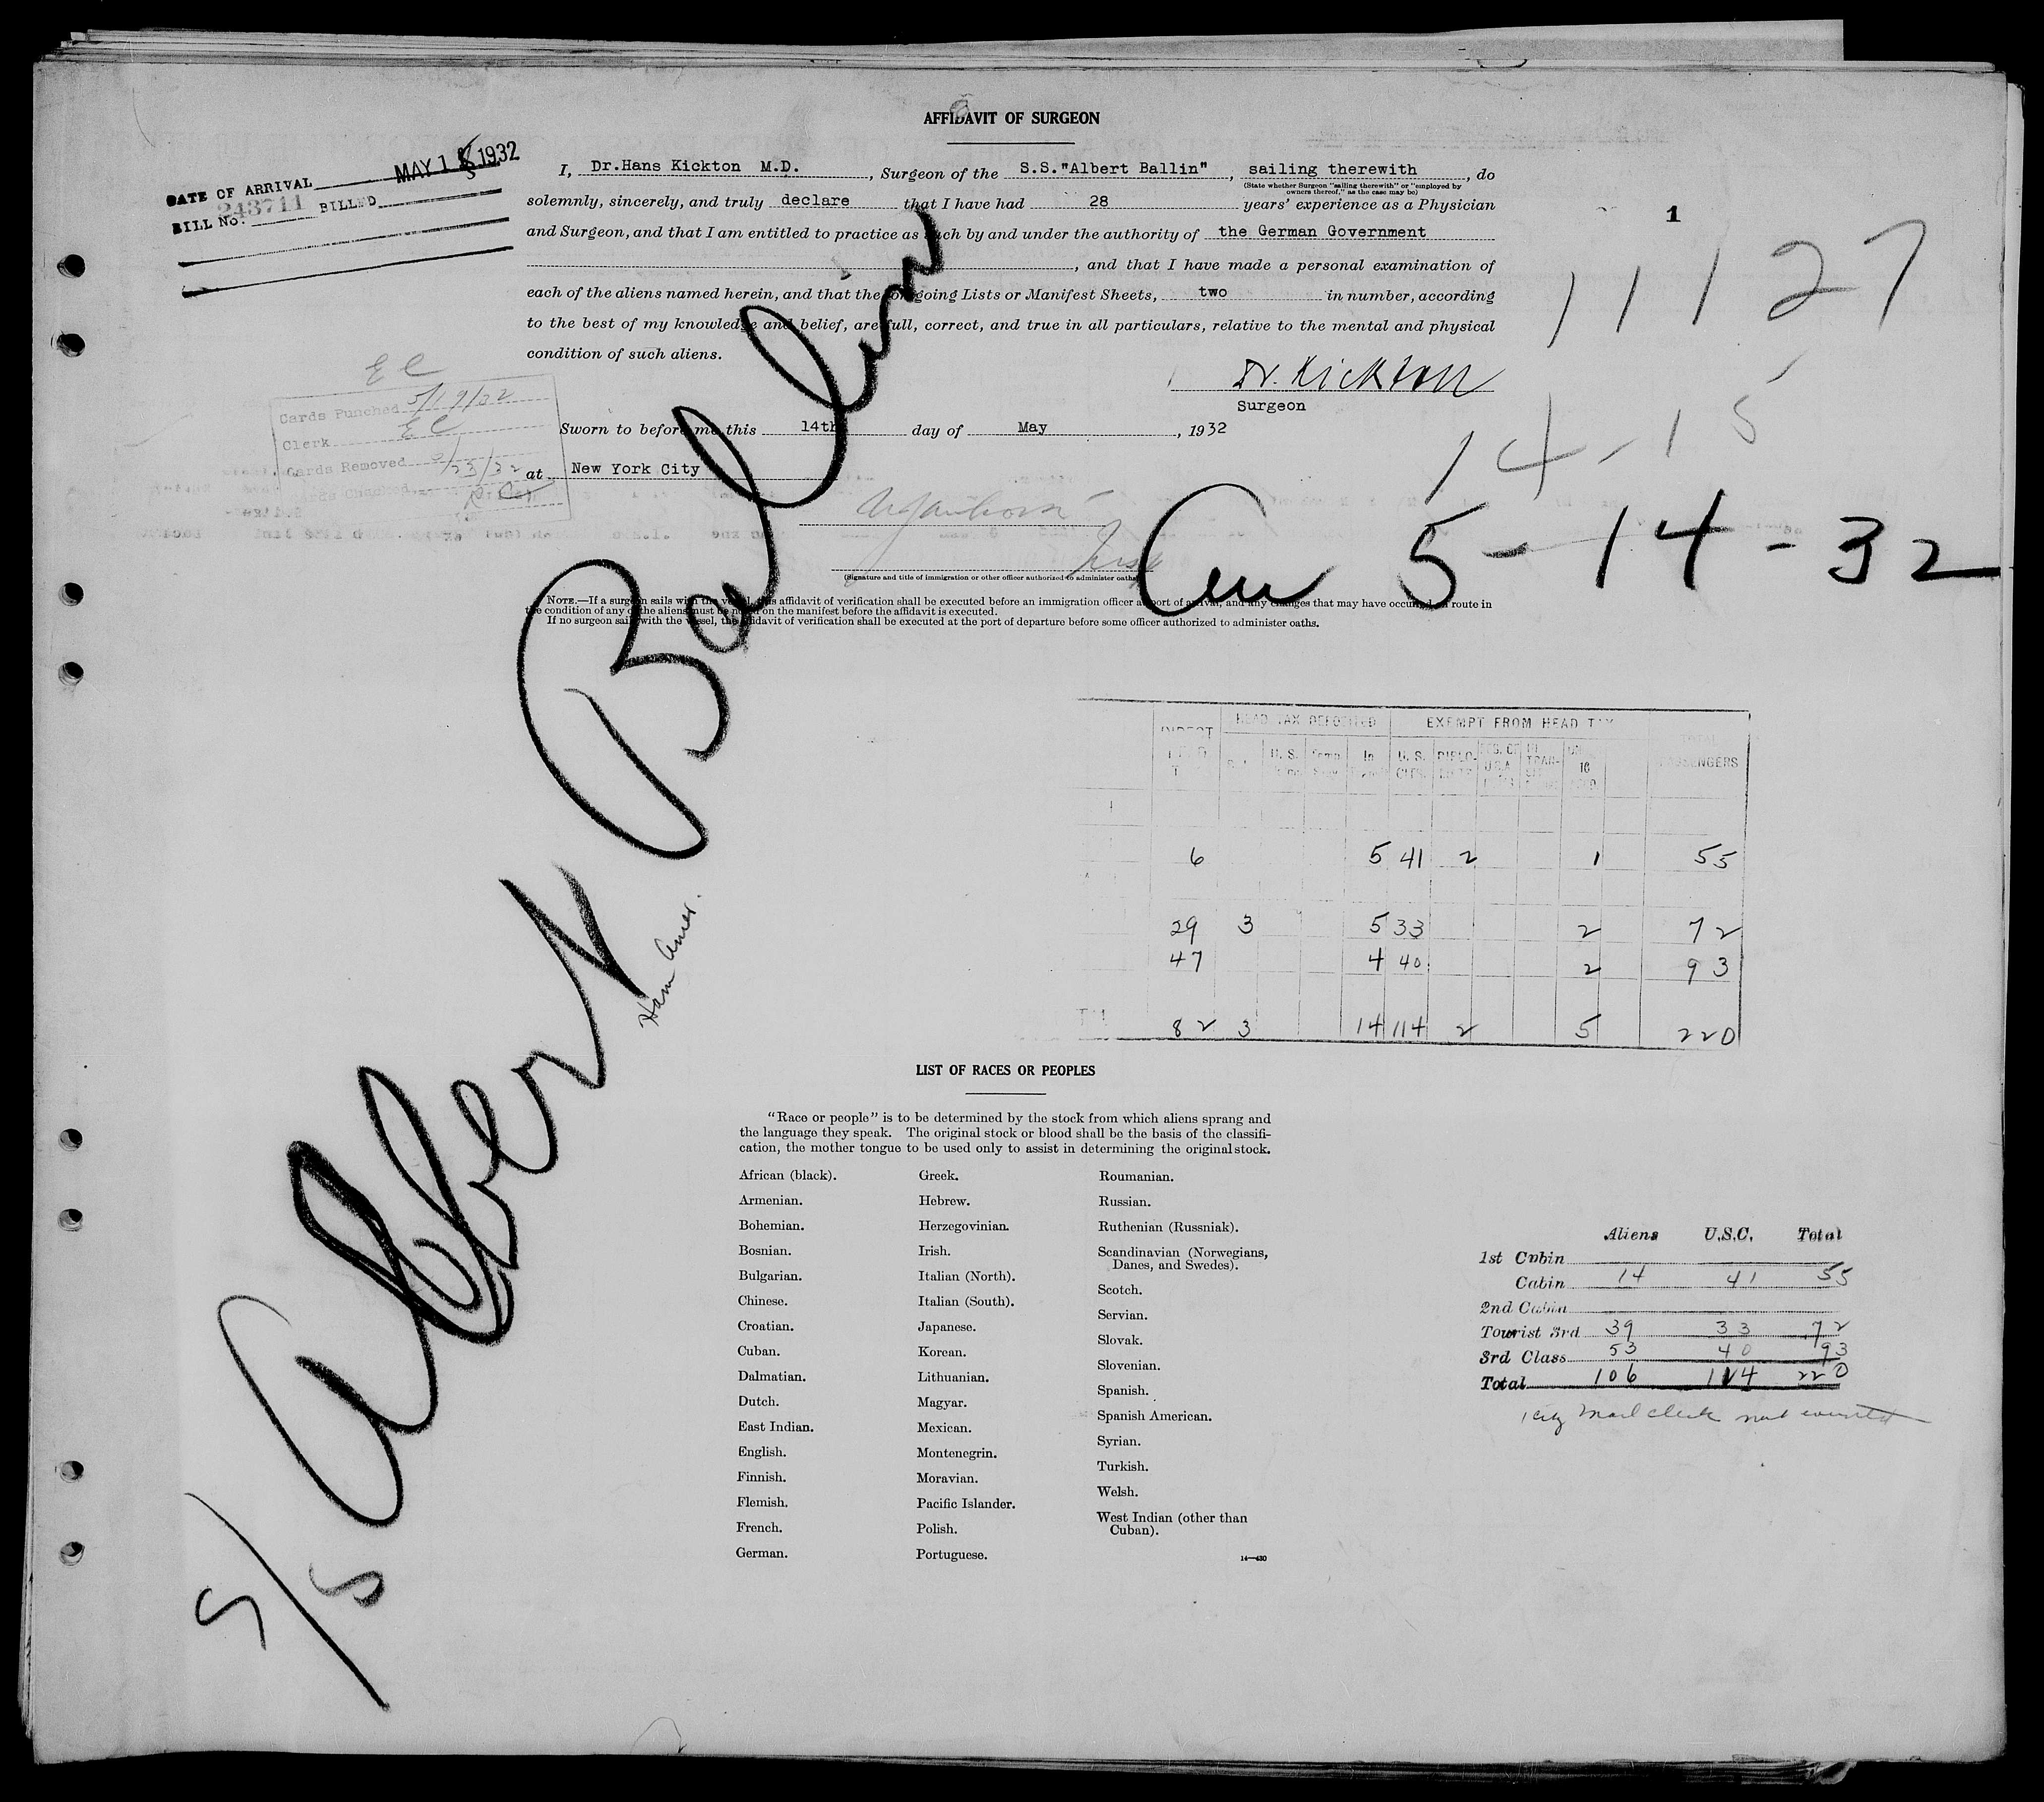 AFFIDAVIT OF SURGEON
DATE OF ARRIVAL MAY 1 5 1932
BILL No. 243711 BILLED
I, Dr.Hans Kickton M.D., Surgeon of the S.S."Albert Ballin", sailing therewith, do
(State whether Surgeon "sailing therewith" or "employed by
owners thereof," as the case may be)
solemnly, sincerely, and truly declare that I have had 28 years' experience as a Physician
and Surgeon, and that I am entitled to practice as such by and under the authority of the German Government
, and that I have made a personal examination of
each of the aliens named herein, and that the foregoing Lists or Manifest Sheets, two in number, according
to the best of my knowledge and belief, are full, correct, and true in all particulars, relative to the mental and physical
condition of such aliens.
1
11127
Dr. Kickton
Surgeon
14-15
E C
Cards Punched 5/19/32
Clerk E C
Cards Removed /23/32
Cards Checked
Sworn to before me this 14th day of May, 1932
at New York City
(Signature and title of immigration or other officer authorized to administer oaths)
Arr 5-14-32
NOTE.—If a surgeon sails with the vessel, this affidavit of verification shall be executed before an immigration officer at port of arrival, and any changes that may have occurred en route in
the condition of any of the aliens must be noted on the manifest before the affidavit is executed.
If no surgeon sails with the vessel, the affidavit of verification shall be executed at the port of departure before some officer authorized to administer oaths.
S/S Albert Ballin
Ham Amer.
DIRECT HEAD TAX HEAD TAX DEPOSITED EXEMPT FROM HEAD TAX TOTAL PASSENGERS
U. S. In Transit U. S. CITS. DIPLO- POS. OF U.S.A. IN TRAN- UNDER 16
6 5 41 2 1 55
29 3 5 33 2 72
47 4 40 2 93
82 3 14 114 2 5 220
LIST OF RACES OR PEOPLES
"Race or people" is to be determined by the stock from which aliens sprang and
the language they speak. The original stock or blood shall be the basis of the classifi-
cation, the mother tongue to be used only to assist in determining the original stock.
African (black).
Armenian.
Bohemian.
Bosnian.
Bulgarian.
Chinese.
Croatian.
Cuban.
Dalmatian.
Dutch.
East Indian.
English.
Finnish.
Flemish.
French.
German.
Greek.
Hebrew.
Herzegovinian.
Irish.
Italian (North).
Italian (South).
Japanese.
Korean.
Lithuanian.
Magyar.
Mexican.
Montenegrin.
Moravian.
Pacific Islander.
Polish.
Portuguese.
Roumanian.
Russian.
Ruthenian (Russniak).
Scandinavian (Norwegians,
Danes, and Swedes).
Scotch.
Servian.
Slovak.
Slovenian.
Spanish.
Spanish American.
Syrian.
Turkish.
Welsh.
West Indian (other than
Cuban).
14—430
Aliens U.S.C. Total
1st Cabin
Cabin 14 41 55
2nd Cabin
Tourist 3rd 39 33 72
3rd Class 53 40 93
Total 106 114 220
mail clerk not counted